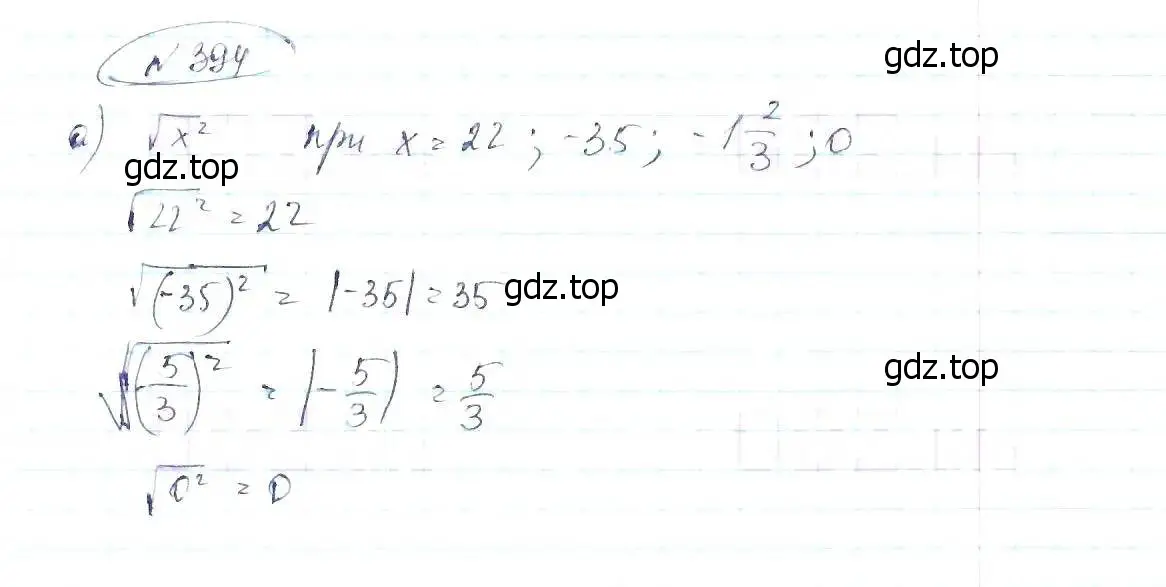 № 394
gdz.top
а) √x² при x = 22 ; -35 ; -1 2/3 ; 0
gdz.top
√22² = 22
√(-35)² = |-35| = 35
gdz.top
√(-5/3)² = |-5/3| = 5/3
gdz.top
√0² = 0